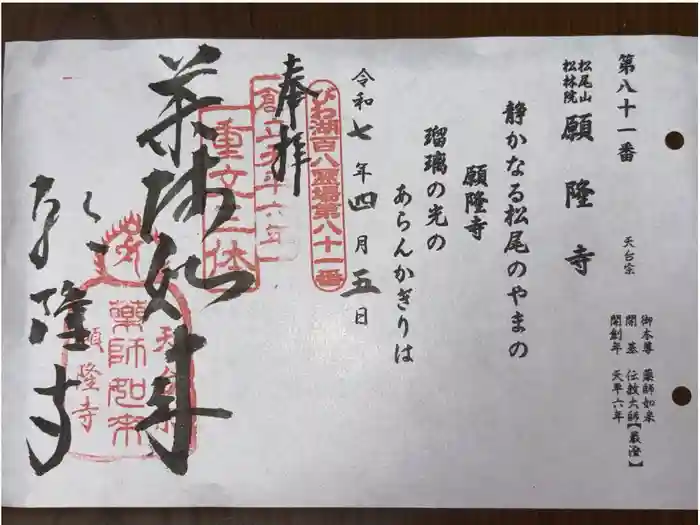 第八十一番
天台宗
御本尊 薬師如来
開基 伝教大師【最澄】
開創年 天平六年
松尾山
松林院
願隆寺
静かなる松尾のやまの
願隆寺
瑠璃の光の
あらんかぎりは
令和七年四月五日
びわ湖百八霊場第八十一番
奉拝
創立天平六年
重文三体
薬師如来
願隆寺
薬師如来
願隆寺